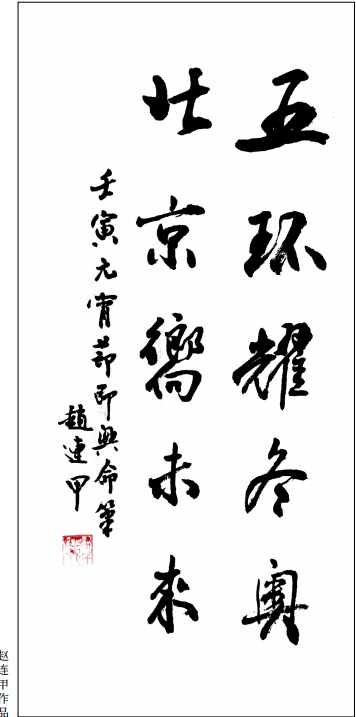 五环耀冬奥
北京嚮未来
壬寅元宵节即興命笔
趙連甲
赵连甲作品